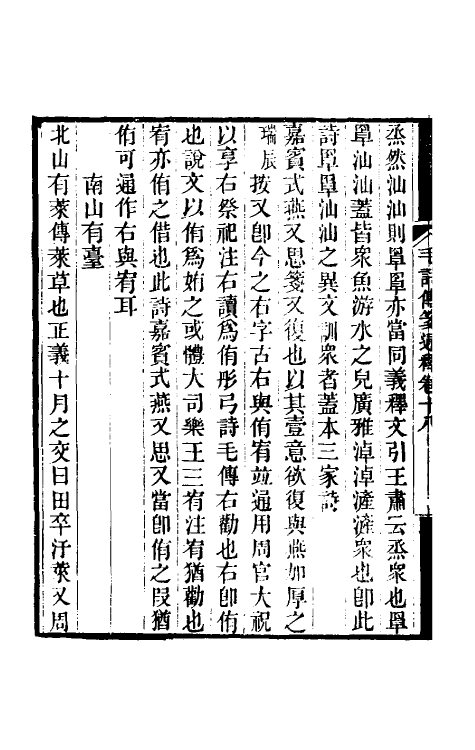 毛詩傳箋通釋卷十八
烝然汕汕則罩罩亦當同義釋文引王肅云烝衆也罩
罩汕汕蓋皆衆魚游水之皃廣雅淖淖滻滻衆也卽此
詩罩罩汕汕之異文訓衆者蓋本三家詩
嘉賓式燕又思箋又復也以其壹意欲復與燕加厚之
瑞辰按又卽今之右字古右與侑宥竝通用周官大祝
以享右祭祀注右讀爲侑彤弓詩毛傳右勸也右卽侑
也說文以侑爲姷之或體大司樂王三宥注宥猶勸也
宥亦侑之借也此詩嘉賓式燕又思又當卽侑之叚猶
侑可通作右與宥耳
南山有臺
北山有萊傳萊草也正義十月之交曰田卒汙萊又周